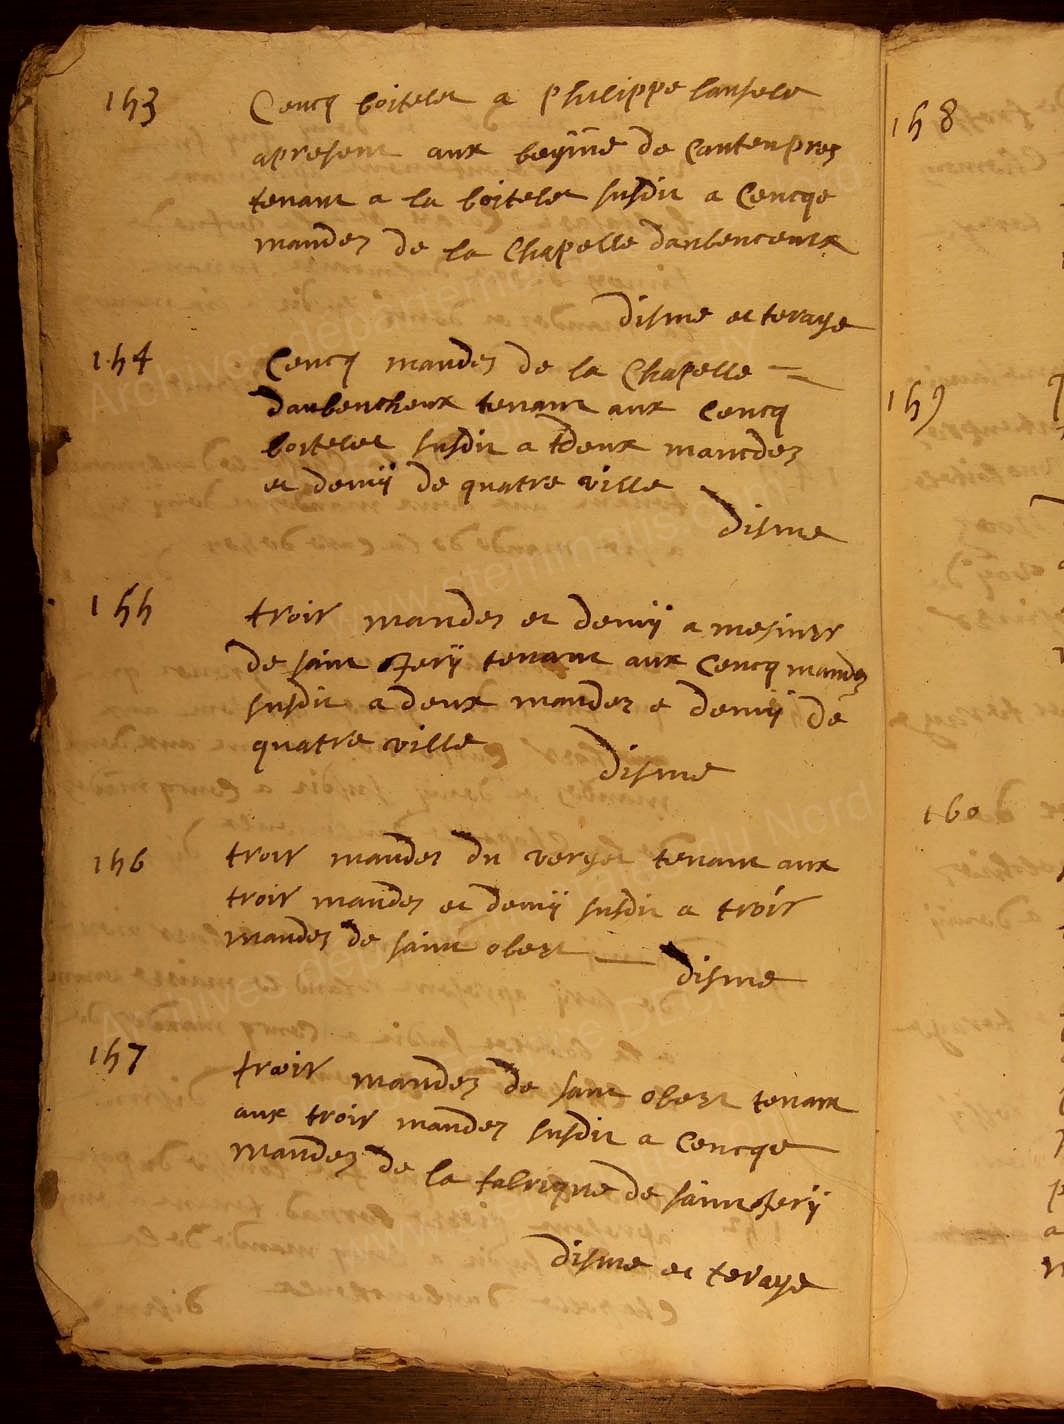 153 Cencq boitelet a Philippe lansele
apresent aux begüine de Cantenprez
tenant a la boitelet susdit a Cencqe
mandez de la Chapelle daubenceulx
disme et teraye
154 Cencq mandez de la Chapelle
daubencheux tenant aux Cencq
boitelet susdit a deux mandez
et demÿ de quatre ville
disme
155 troir mandez et demÿ a mesinr
de saint gerÿ tenant aux Cencq mandez
susdit a deux mandez e demÿ de
quatre ville
disme
156 troir mandez du verger tenant aux
troir mandez et demÿ susdit a troir
mandez de saint obert
disme
157 troir mandez de saint obert tenant
aux troir mandez susdit a Cencqe
mandez de la fabrique de saint gerÿ
disme et teraye
158
159
160